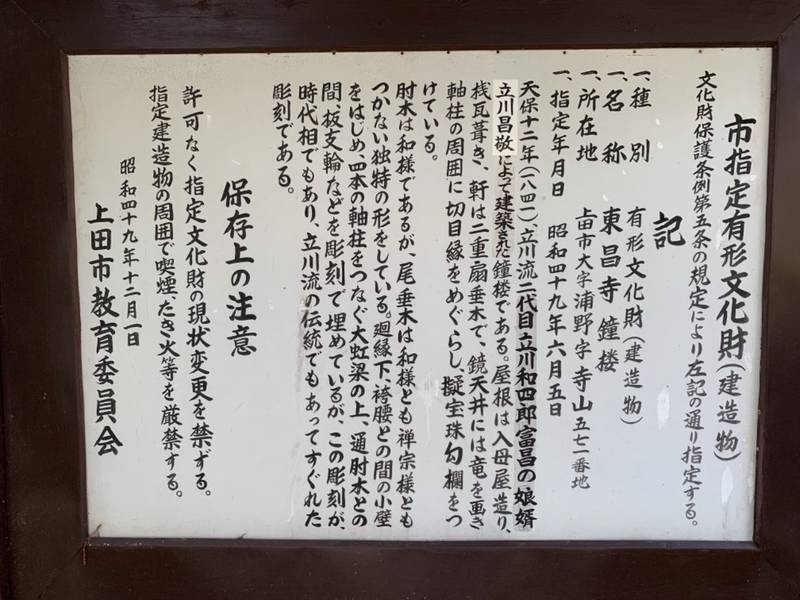 市指定有形文化財(建造物)
文化財保護条例第五条の規定により左記の通り指定する。
記
一、種別 有形文化財(建造物)
一、名称 東昌寺鐘楼
一、所在地 上田市大字浦野字寺山五七一番地
一、指定年月日 昭和四十九年六月五日
天保十二年(一八四一)、立川流二代目立川和四郎富昌の娘婿
立川昌敬によって建築された鐘楼である。屋根は入母屋造り、
桟瓦葺き、軒は二重扇垂木で、鏡天井には竜を画き
軸柱の周囲に切目縁をめぐらし、擬宝珠勾欄をつ
けている。
肘木は和様であるが、尾垂木は和様とも禅宗様とも
つかない独特の形をしている。廻縁下、袴腰との間の小壁
をはじめ、四本の軸柱をつなぐ大虹梁の上、通肘木との
間、板支輪などを彫刻で埋めているが、この彫刻が、
時代相でもあり、立川流の伝統でもあってすぐれた
彫刻である。
保存上の注意
許可なく指定文化財の現状変更を禁ずる。
指定建造物の周囲で喫煙、たき火等を厳禁する。
昭和四十九年十二月一日
上田市教育委員会